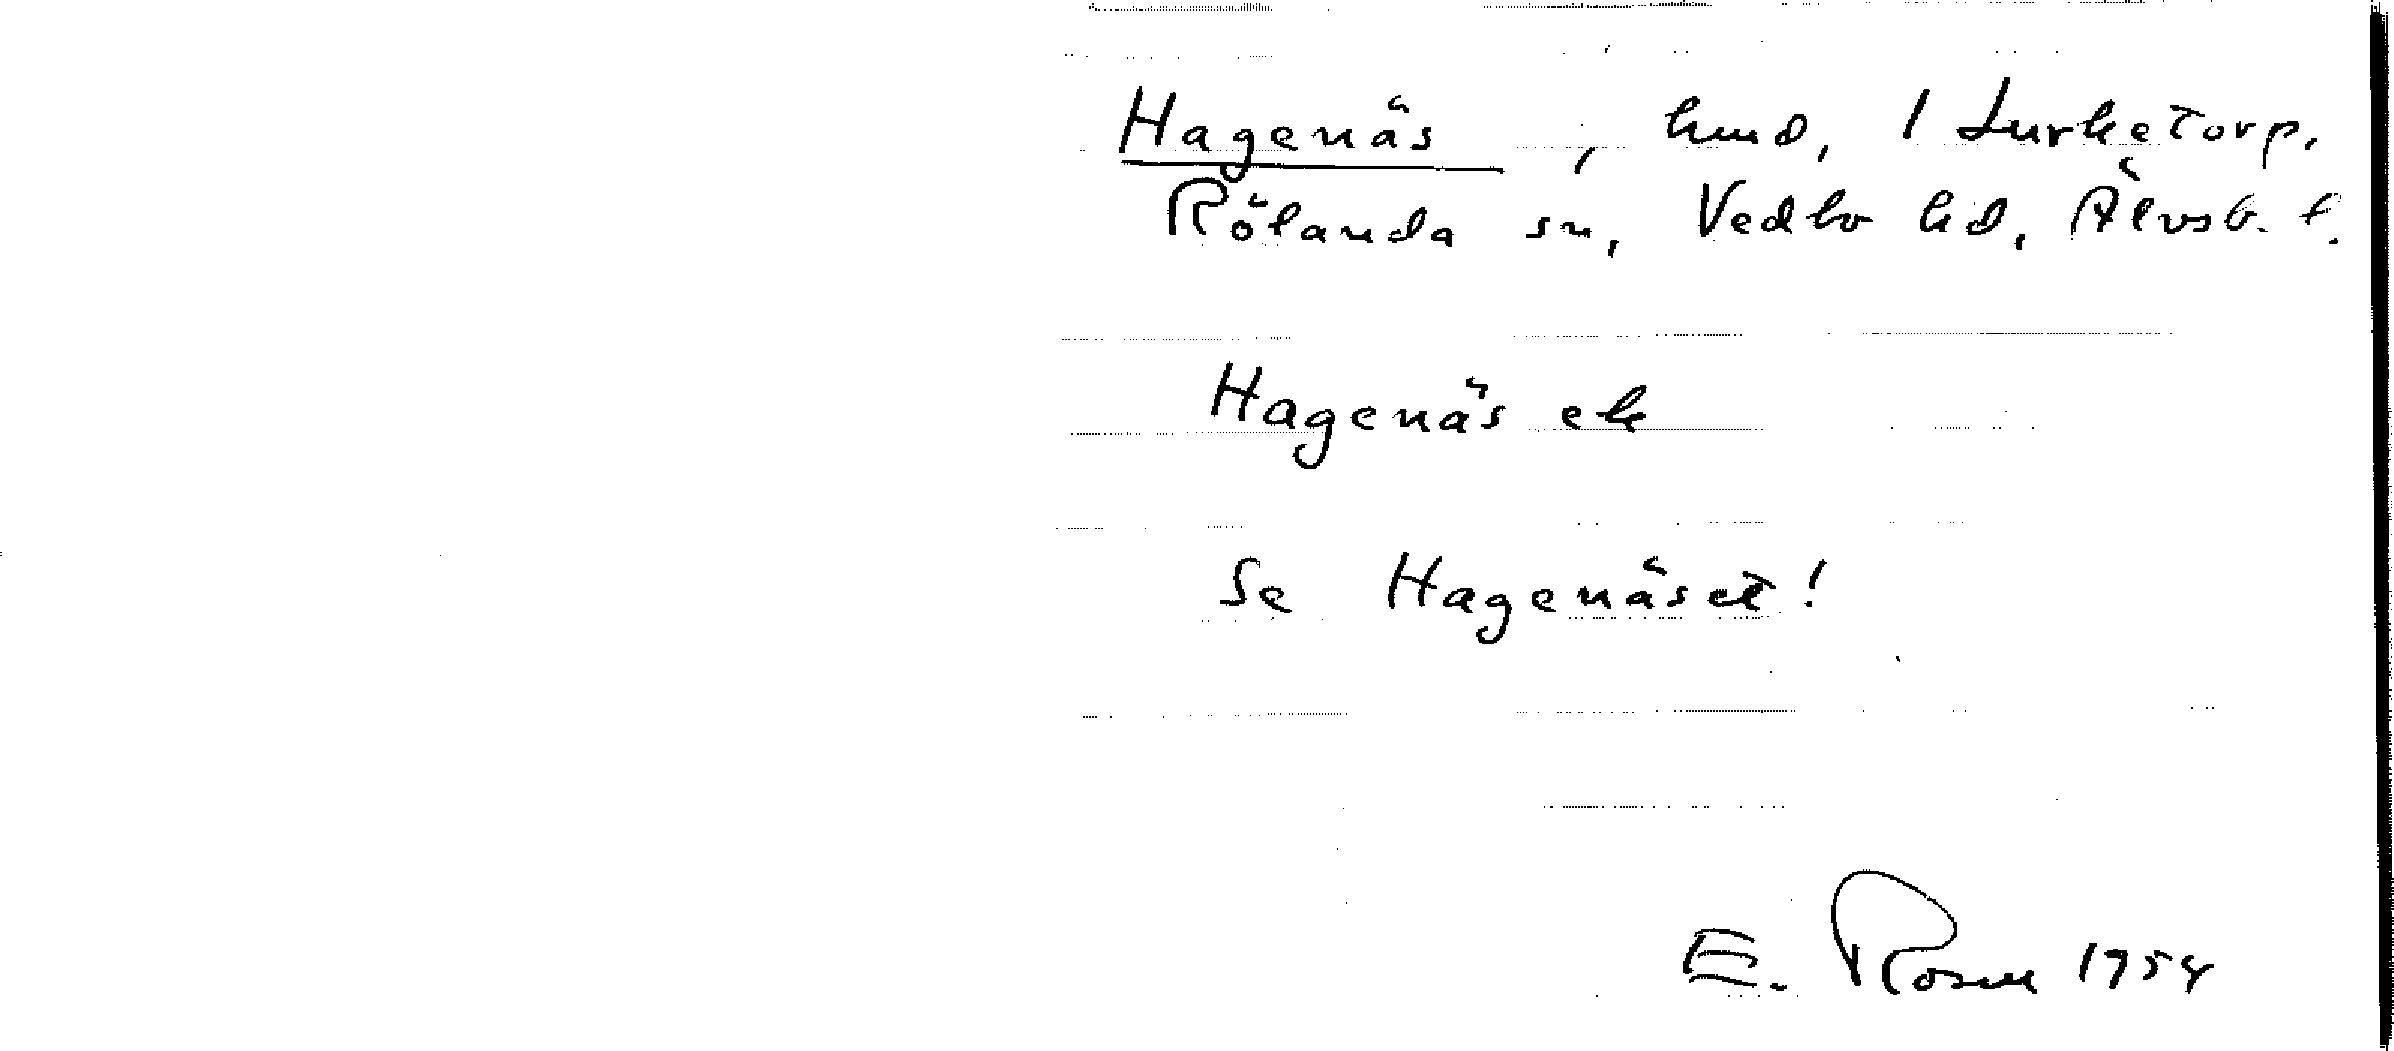 Hagenäs, hmd, 1 Lurketorp,
Rölanda sn, Vedbo hd, Älvsb. l.
Hagenäs ek
Se Hagenäset!
E. Rosen 1954